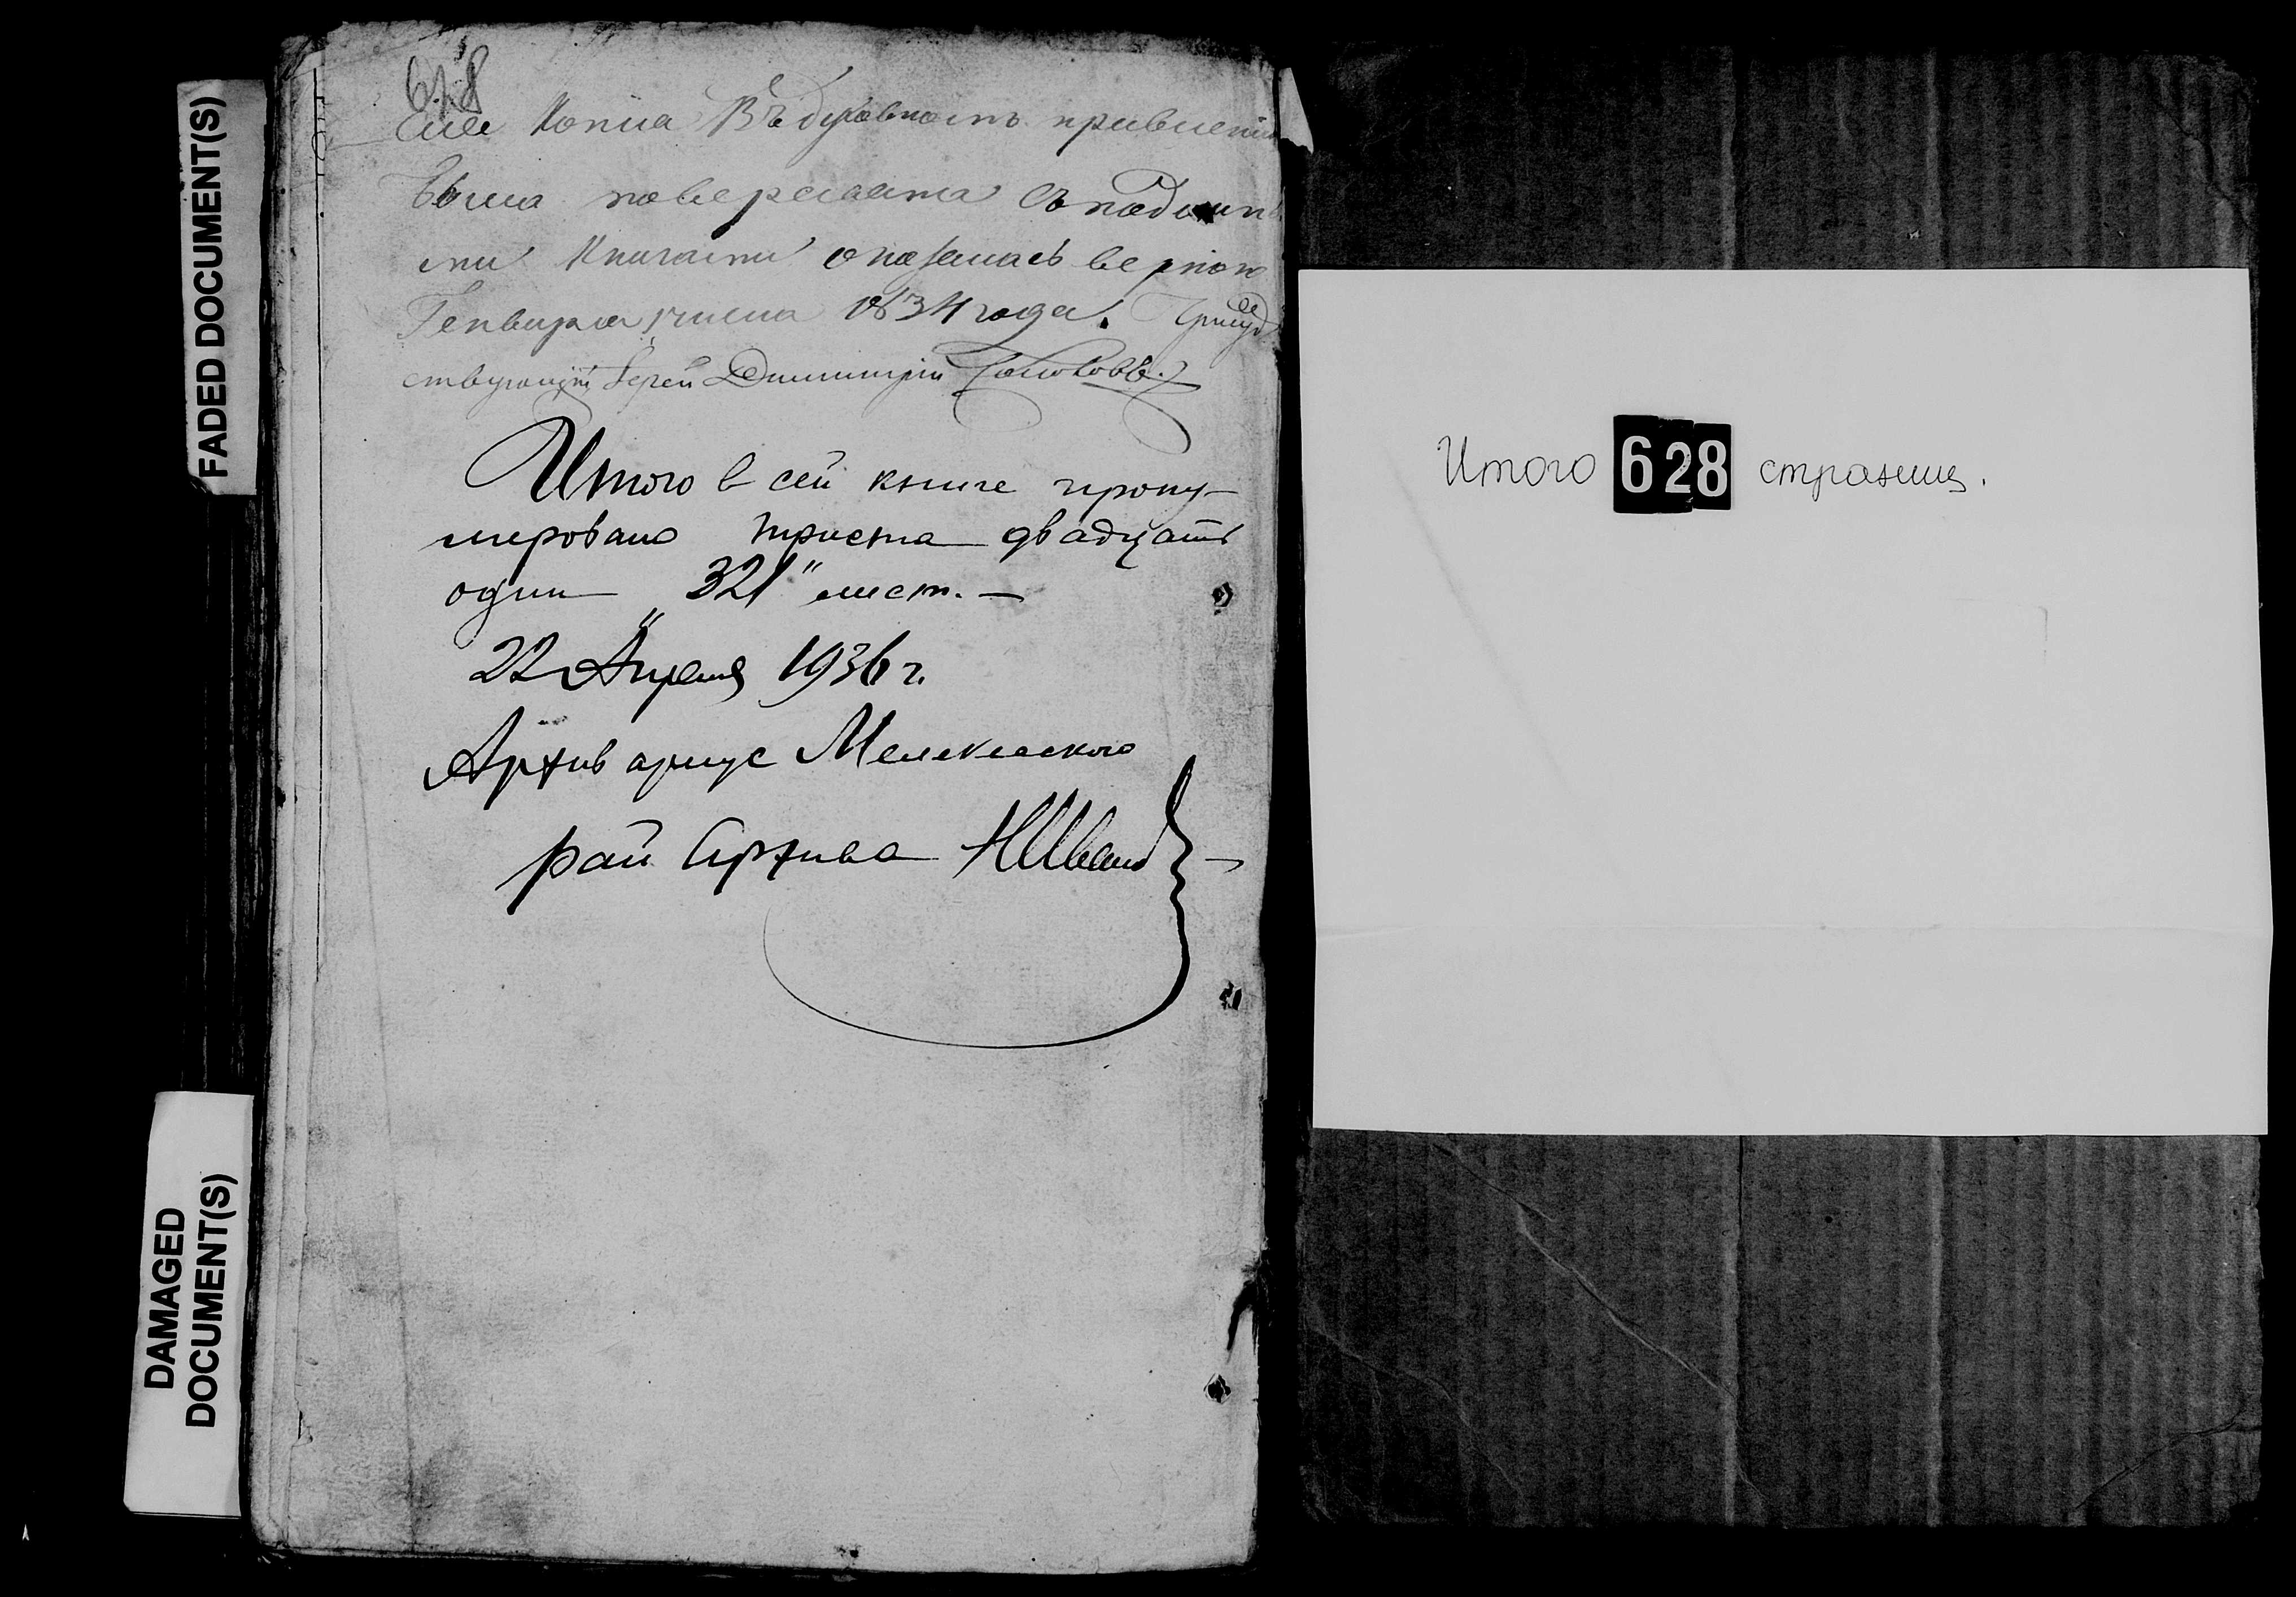 FADED DOCUMENT(S)
DAMAGED
DOCUMENT(S)
628
Сия Копия Въ духовность правлени
была поверяема съ подлин
ми Книгами оказалась верною
Генваря числа 1834 года. Присуд
ствующий Iерей Димитрий
Итого в сей книге прону-
мировано триста двадцать
один "321" лист. —
22 Апреля 1936 г.
Архивариус Мелекесского
рай Архива НИванов
Итого 628 страниц.